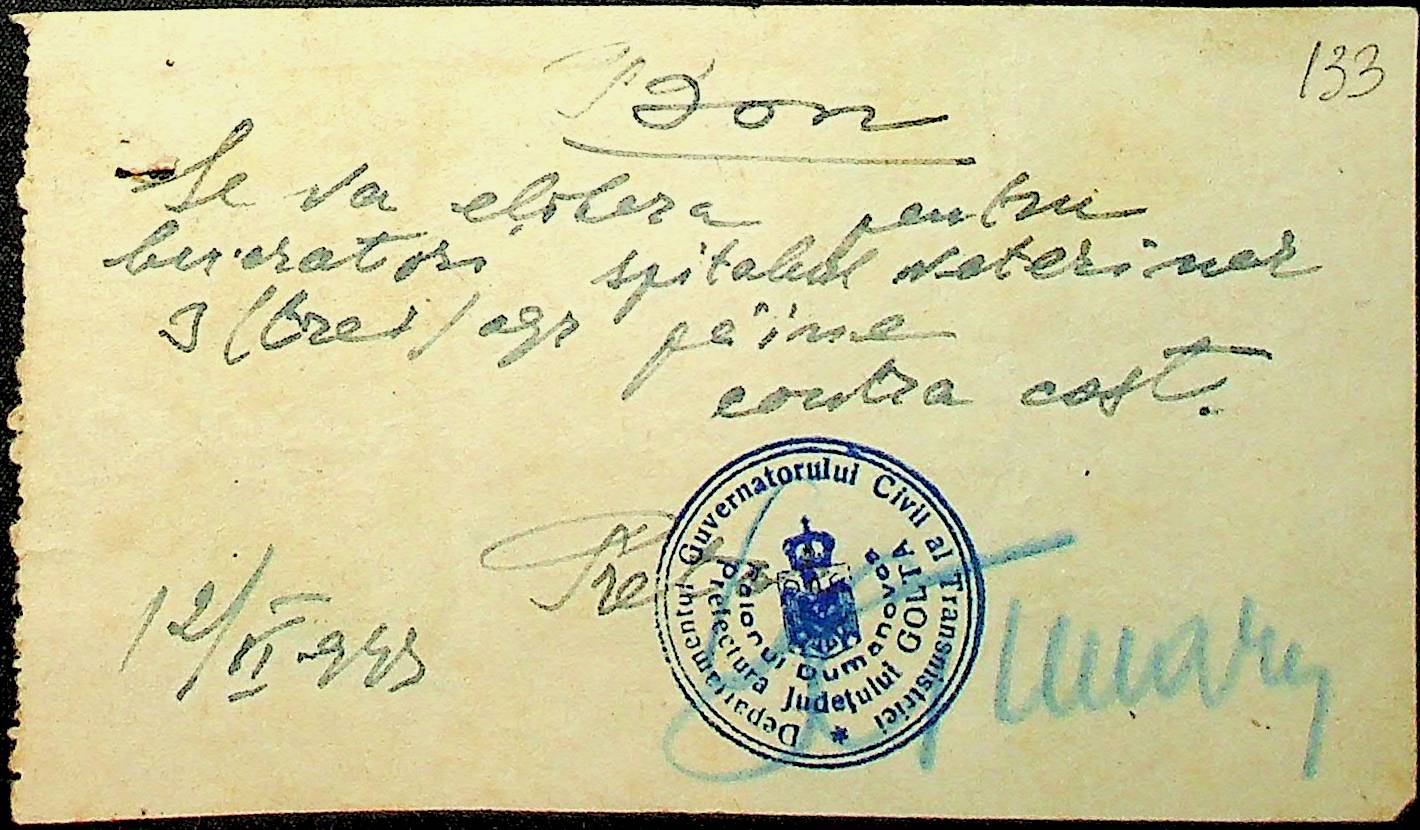 133
Bon
Se va elibera pentru
lucratori spitalul veterinar
3 (trei) kgr pâine
contra cost.
Pretor
12/VI 943
Departamentul Guvernatorului Civil al Transnistriei
Prefectura Județului GOLTA
Raionul Dumanovca